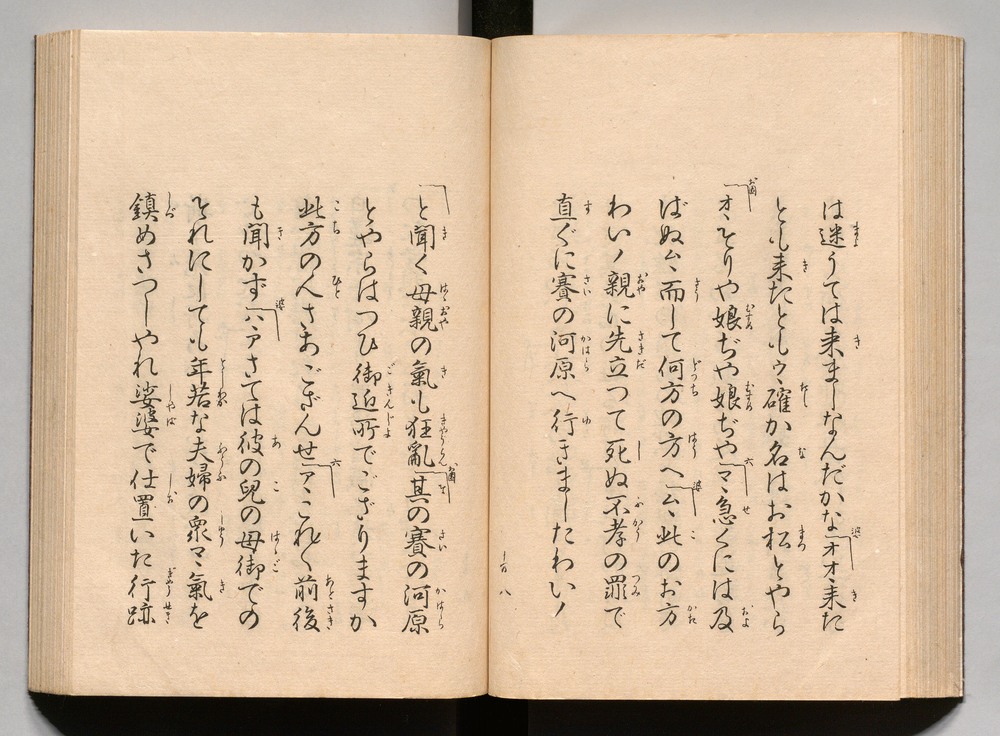 は迷うては来ましなんだかな「オオ来た
とも来たともウヽ確か名はお松とやら
「オヽそりや娘ぢや娘ぢや「マヽ急くには及
ばぬムヽ而して何方の方へ「ムヽ此のお方
わいノ親に先立つて死ぬ不孝の罪で
直ぐに賽の河原へ行きましたわいノ
「と聞く母親の氣も狂亂「其の賽の河原
とやらはつひ御近所でござりますか
此方の人さあござんせ「アヽこれ〱前後
も聞かず「ハヽアさては彼の兒の母御での
それにしても年若な夫婦の衆マヽ氣を
鎮めさつしやれ娑婆で仕置いた行跡